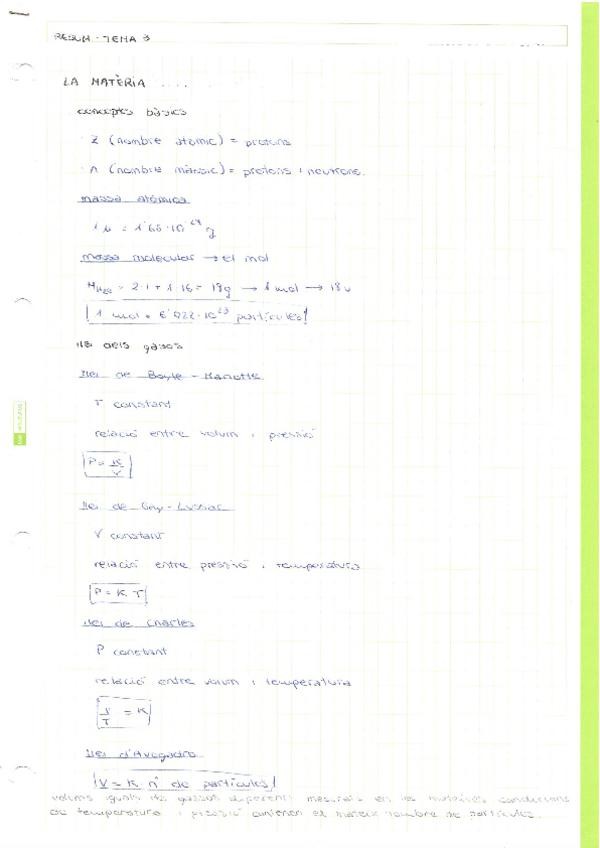 RESUM - TEMA 3
LA MATÈRIA
conceptes bàsics
· Z (nombre atòmic) = protons
· A (nombre màssic) = protons i neutrons.
massa atòmica
1 u = 1'66·10⁻²⁴ g
massa molecular → el mol
M_H₂O = 2·1 + 1·16 = 18g → 1 mol → 18 u
1 mol = 6'022·10²³ partícules
lleis dels gasos
llei de Boyle - Mariotte
T constant
relació entre volum i pressió
P = K/V
llei de Gay-Lussac
V constant
relació entre pressió i temperatura
P = K T
llei de Charles
P constant
relació entre volum i temperatura
V/T = K
llei d'Avogadro
V = K · nº de partícules
volums iguals de gasos diferents mesurats en les mateixes condicions
de temperatura i pressió contenen el mateix nombre de partícules.